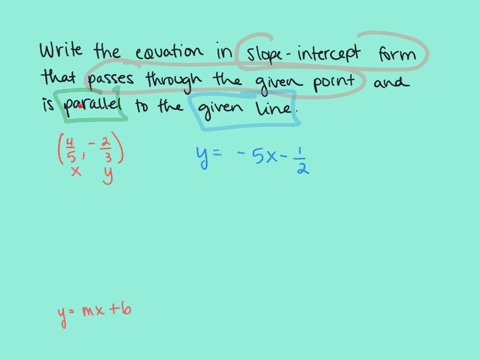 Write the equation in slope-intercept form
that passes through the given point and
is parallel to the given line.
(4/5, -2/3)
x y
y = -5x - 1/2
y = mx + b